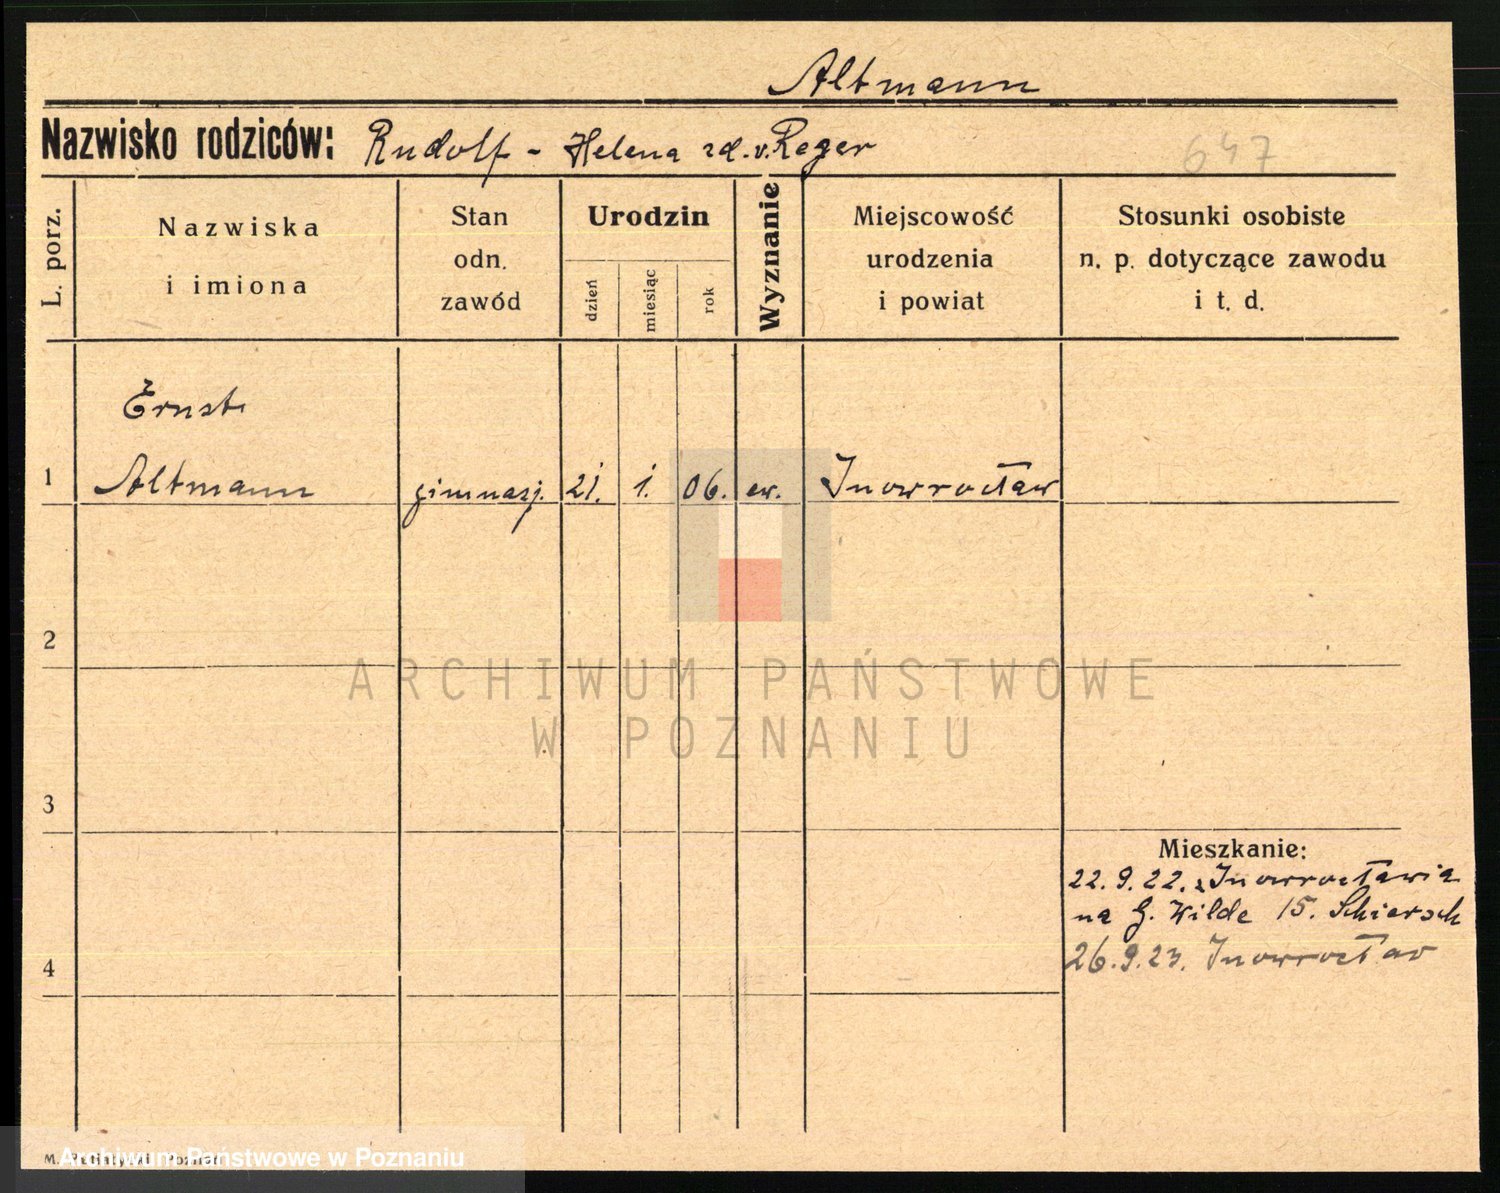 Altmann
Nazwisko rodziców: Rudolf - Helena zd. v. Reger
647
L. porz.
Nazwiska
i imiona
Stan
odn.
zawód
Urodzin
dzień
miesiąc
rok
Wyznanie
Miejscowość
urodzenia
i powiat
Stosunki osobiste
n. p. dotyczące zawodu
i t. d.
Ernst
1 Altmann gimnazj. 21. 1. 06. ew. Inowrocław
2
ARCHIWUM PAŃSTWOWE
W POZNANIU
3
Mieszkanie:
22.9.22. z Inowrocławia
na G. Wilde 15. Schiersch
26.9.23. Inowrocław
4
M. Poznań
Archiwum Państwowe w Poznaniu